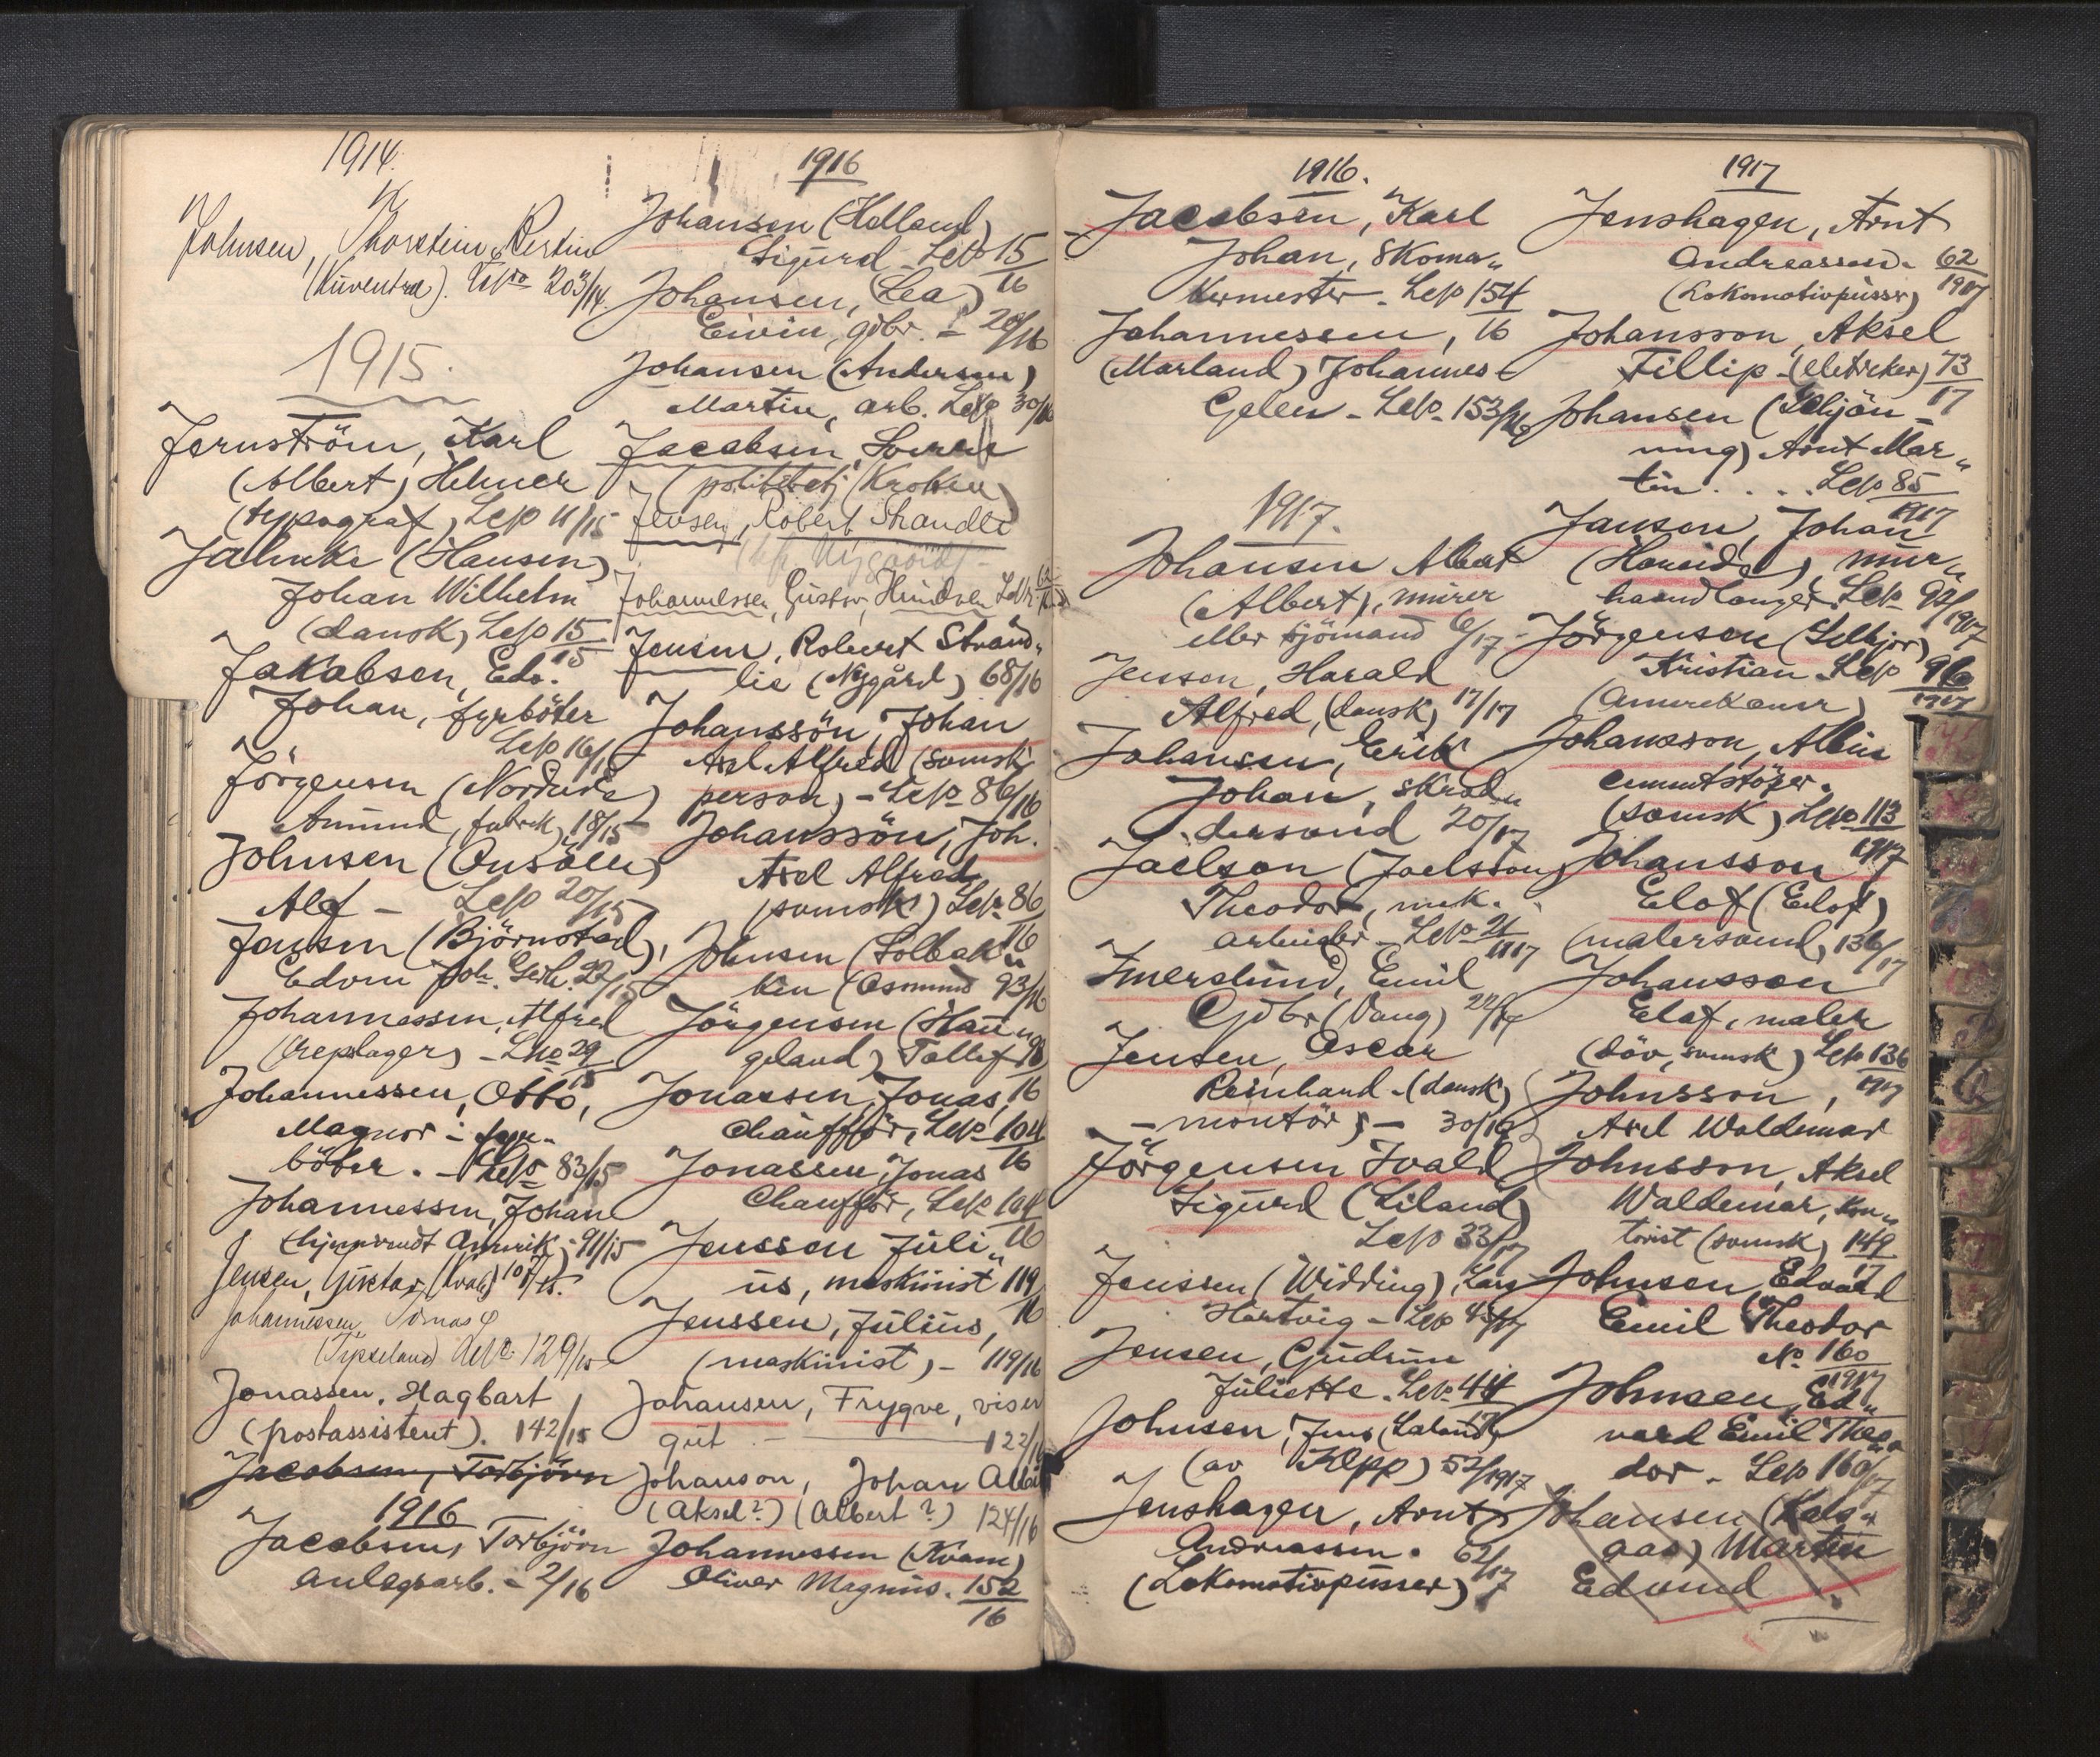 1914.
Johnsen, Thorstein Kertin
203/14.
1915.
Jernström, Karl
(Albert) Helmer
(typograf) Lep 11/15
Jahnke (Hansen)
Johan Wilhelm
(dansk) Lep 15/15
Jakobsen, Edv.
Johan, fyrböter
Lep 16/15
Jörgensen (Norduide)
Amund, fabrik, 18/15
Johnsen (Onsöien)
Alf - Lep 20/15
Jensen (Björnstad),
Edvin Joh. Gerh. 22/15
Johannessen, Alfred
(repslager) - Lno 29/15
Johannessen, Otto,
Magnor - fyr-
böter. - Lep 83/15
Johannessen, Johan
(hjemvendt Amerik. 91/15
Jensen, Gustav (Kval) 107/15.
Johannessen, Tomas
129/15
Jonassen, Hagbart
(postassistent). 142/15
Jacobsen, Torbjörn
1916
Jacobsen, Torbjörn
anlegsarb. - 2/16
1916
Johansen (Helland)
Sigurd - Lep 15/16
Johansen, (Lea)
Eivin, gdbr. - 20/16
Johansen (Andersen)
Martin, arb. Lep 30/16
Jacobsen, Sverre
(politibetj. (Kroken)
Jensen, Robert Strandli
Johannessen, Gustav,
Jensen, Robert Strand-
lie (Nygård) 68/16
Johanssön, Johan
Axel Alfred (svensk
person) - Lep 86/16
Johanssön, Joh.
Axel Alfred
(svensk) Lep. 86/16
Johnsen (Solbak-
ken (Osmund 93/16
Jörgensen (Hau-
geland) Tollef 98/16
Jonassen, Jonas,
chaufför, Lep 104/16
Jonassen, Jonas
Chaufför, Lep 104/16
Jenssen Juli-
us, maskinist 119/16
Jenssen, Julius,
(maskinist) - 119/16
Johansen, Trygve, viser
gut - 122/16
Johanson, Johan Albin
(Aksel?) (Albert?) 124/16
Johannessen (Kvam)
Oliver Magnus. 152/16
1916.
Jacobsen, Karl
Johan, Skoma-
kermester - Lep 154/16
Johannessen,
(Marland) Johannes
Gelen - Lep. 153/16
1917.
Johansen Albert
(Albert), murer
eller sjömand 6/17
Jensen, Harald
Alfred, (dansk) 17/17
Johansen, Erik
Johan, skred-
dersvend 20/17
Joelson (Joelsson)
Theodor, mek.
arbeider - Lep 21/1917
Imerslund, Emil
Gdbr. (Vang) 22/17
Jensen, Oscar
Reinhard - (dansk)
- montör, - 30/17
Jörgensen Ivald
Sigurd (Liland)
Lep 33/17
Jenssen (Widding), Lars
Hartvig - Lep 43/17
Jensen, Gudrun
Juliette. Lep. 44/17
Johnsen, Jens (Laland)
(av Klepp) 52/1917
Jenshagen, Arnt
Andreassen. 62/17
(Lokomotivpusser)
1917
Jenshagen, Arnt
Andreassen - 62/1917
(Lokomotivpusser)
Johansson, Aksel
Fillip - (eletriker) 73/17
Johansen (Schjön-
ning) Arnt Mar-
tin.... Lep 85/1917
Janson, Johan
(Hanside), mur-
haandlanger. Lep 92/1917
Jörgensen (Selbjor)
Kristian - Lep 96/1917
(Amerekaner)
Johansson, Albin
cementstöper.
(svensk) Lep 113/1917
Johansson
Elof (Eilof)
(malersvend) 136/17
Johansson
Elof, maler
(döv, svensk) Lep 136/1917
Johnsson,
Axel Waldemar
Johnsson, Aksel
Waldemar, kon-
torist (svensk) 149/17
Johnsen, Edvard
Emil Theodor
No 160/1917
Johnsen, Ed-
vard Emil Theo-
dor - Lep 160/17
Johansen (Kals-
aas) Martin
Edvind